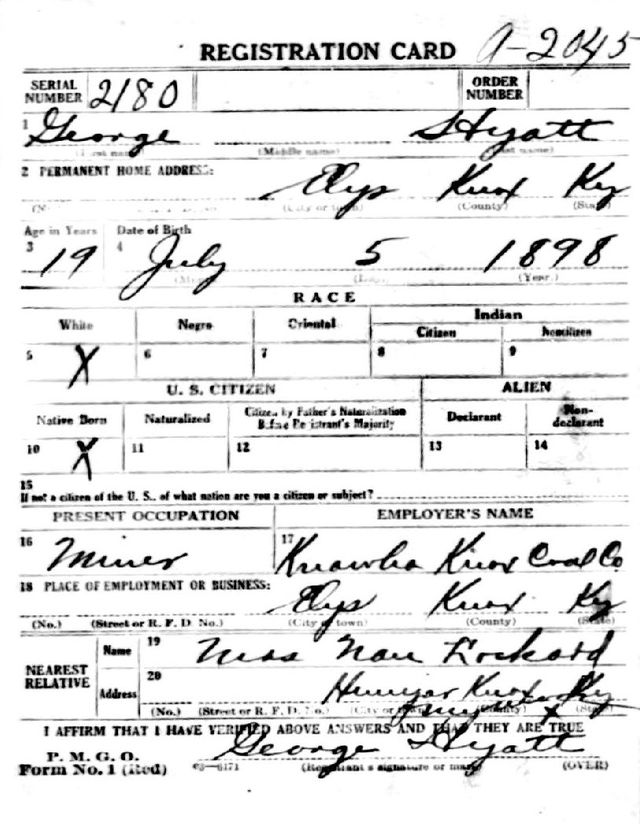 REGISTRATION CARD A-2045
SERIAL NUMBER 2180 ORDER NUMBER
1 George Hyatt
(First name) (Middle name) (Last name)
2 PERMANENT HOME ADDRESS:
Elys Knox Ky
(City or town) (County) (State)
Age in Years Date of Birth
3 19 4 July 5 1898
(Year.)
RACE
White Negro Oriental Indian
Citizen Noncitizen
5 X 6 7 8 9
U. S. CITIZEN ALIEN
Native Born Naturalized Citizen by Father's Naturalization Before Registrant's Majority Declarant Non-declarant
10 X 11 12 13 14
15
If not a citizen of the U. S., of what nation are you a citizen or subject?
PRESENT OCCUPATION EMPLOYER'S NAME
16 Miner 17 Knox Coal Co
18 PLACE OF EMPLOYMENT OR BUSINESS:
Elys Knox Ky
(No.) (Street or R. F. D. No.) (City or town) (County) (State)
NEAREST RELATIVE
Name 19 Lockard
Address 20 Knox Ky
(No.) (Street or R. F. D. No.) (City or town) (County) (State)
I AFFIRM THAT I HAVE VERIFIED ABOVE ANSWERS AND THAT THEY ARE TRUE
P. M. G. O.
Form No. 1 (Red) 03-6171 George Hyatt
(Registrant's signature or mark) (OVER)